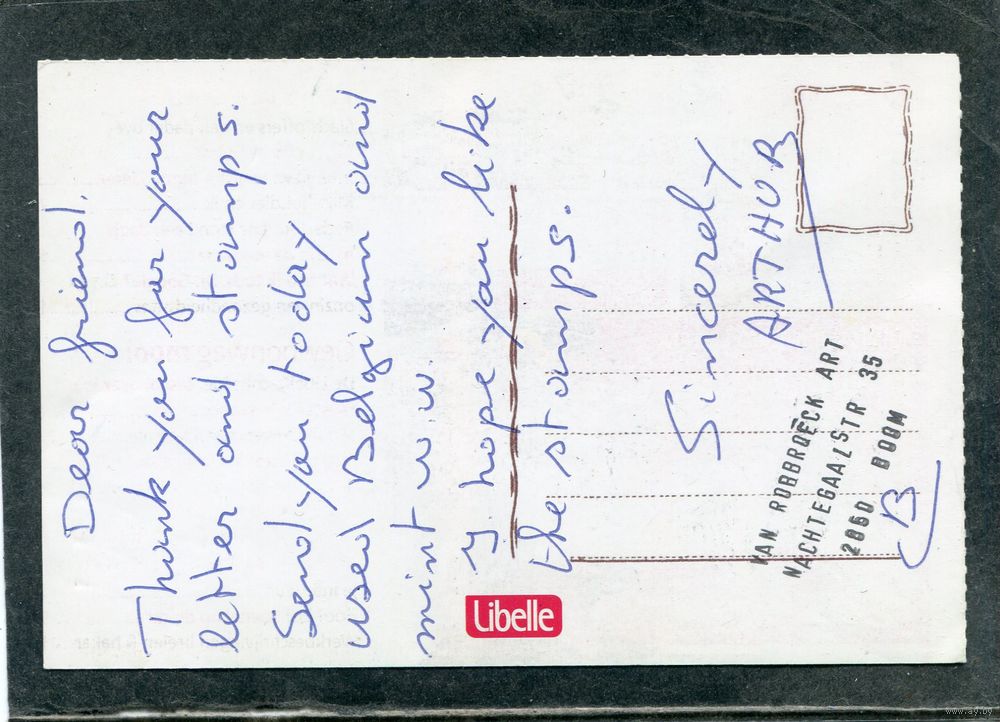 Dear friend,
Thank you for your
letter and stamps.
Send you today
used Belgium and
mint w.w.
y hope you like
the stamps.
Sincerely
ARTHUR
VAN ROBBROECK ART
NACHTEGAALSTR 35
2860 BOOM
B
Libelle
www.ay.by